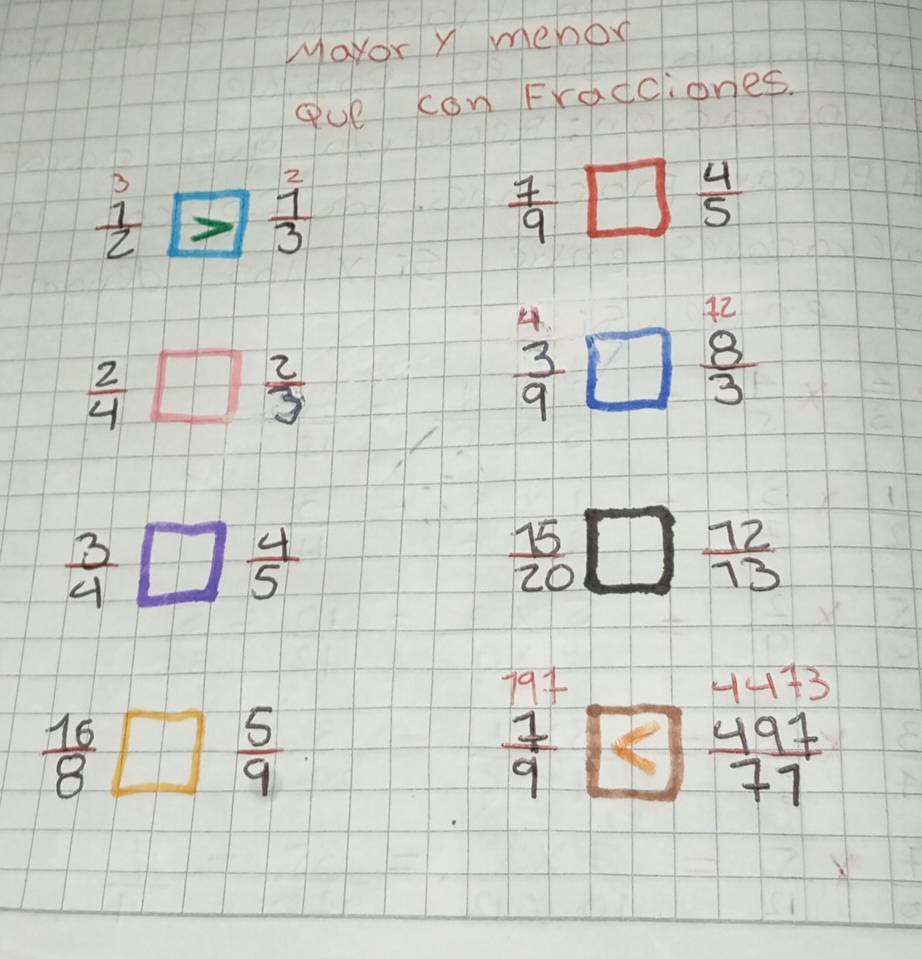 Mayor y menor
Que con Fracciones.
3 2
1/2 > 1/3
7/9 4/5
2/4 2/3
4 72
3/9 8/3
3/4 4/5
15/20 12/13
16/8 5/9
4473
7/9 < 497/71